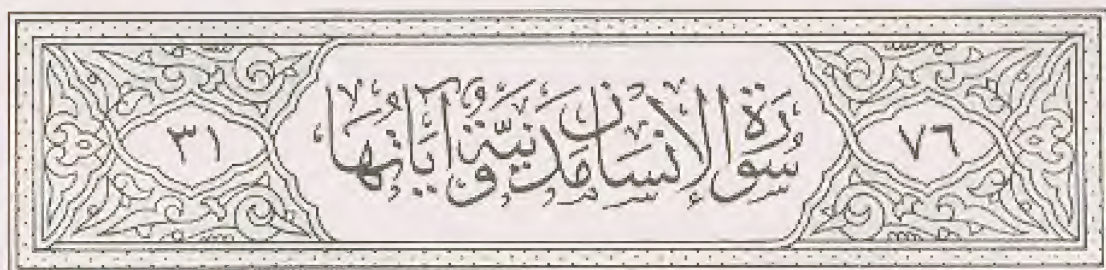 ٧٦ سُورَةُ الإِنسَانِ مَدَنِيَّةٌ وَآيَاتُهَا ٣١